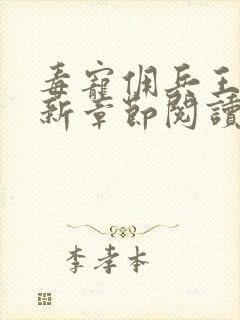 毒寵佣兵王
新章節閱讀
李孝本